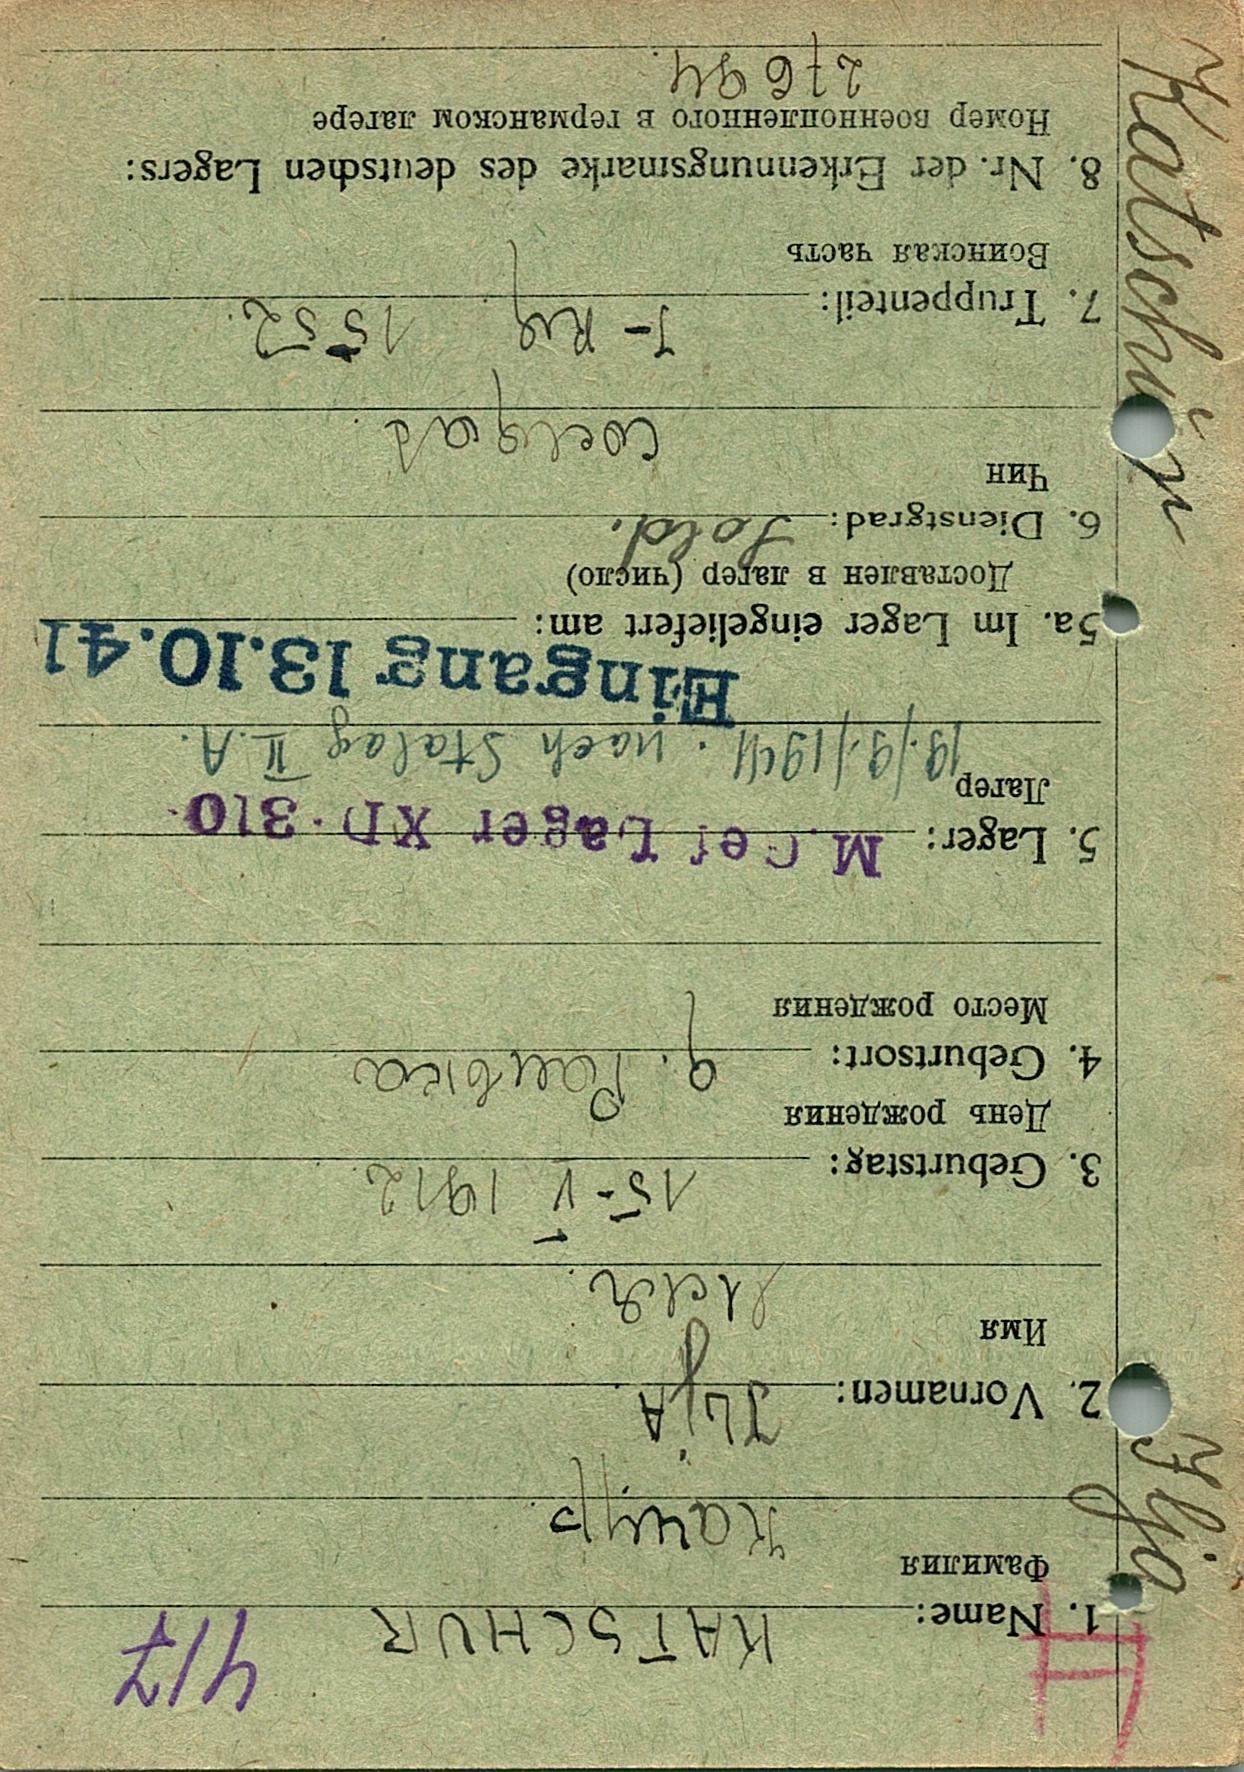 417
H
1. Name: KATSCHUR
Фамилия
Качур
2. Vornamen: ILjA
Имя
Илья
3. Geburtstag: 15-V 1912
День рождения
4. Geburtsort:
Место рождения
5. Lager: M. Gef Lager XD. 310
Лагер
19./9./1941. nach Stalag II.A.
Eingang 13.10.41
5a. Im Lager eingeliefert am:
Доставлен в лагер (число)
6. Dienstgrad: Sold.
Чин
солдат
7. Truppenteil: J-Rg 1552.
Воинская часть
8. Nr. der Erkennungsmarke des deutschen Lagers:
Номер военнопленного в германском лагере
27694
Ilja Katschur